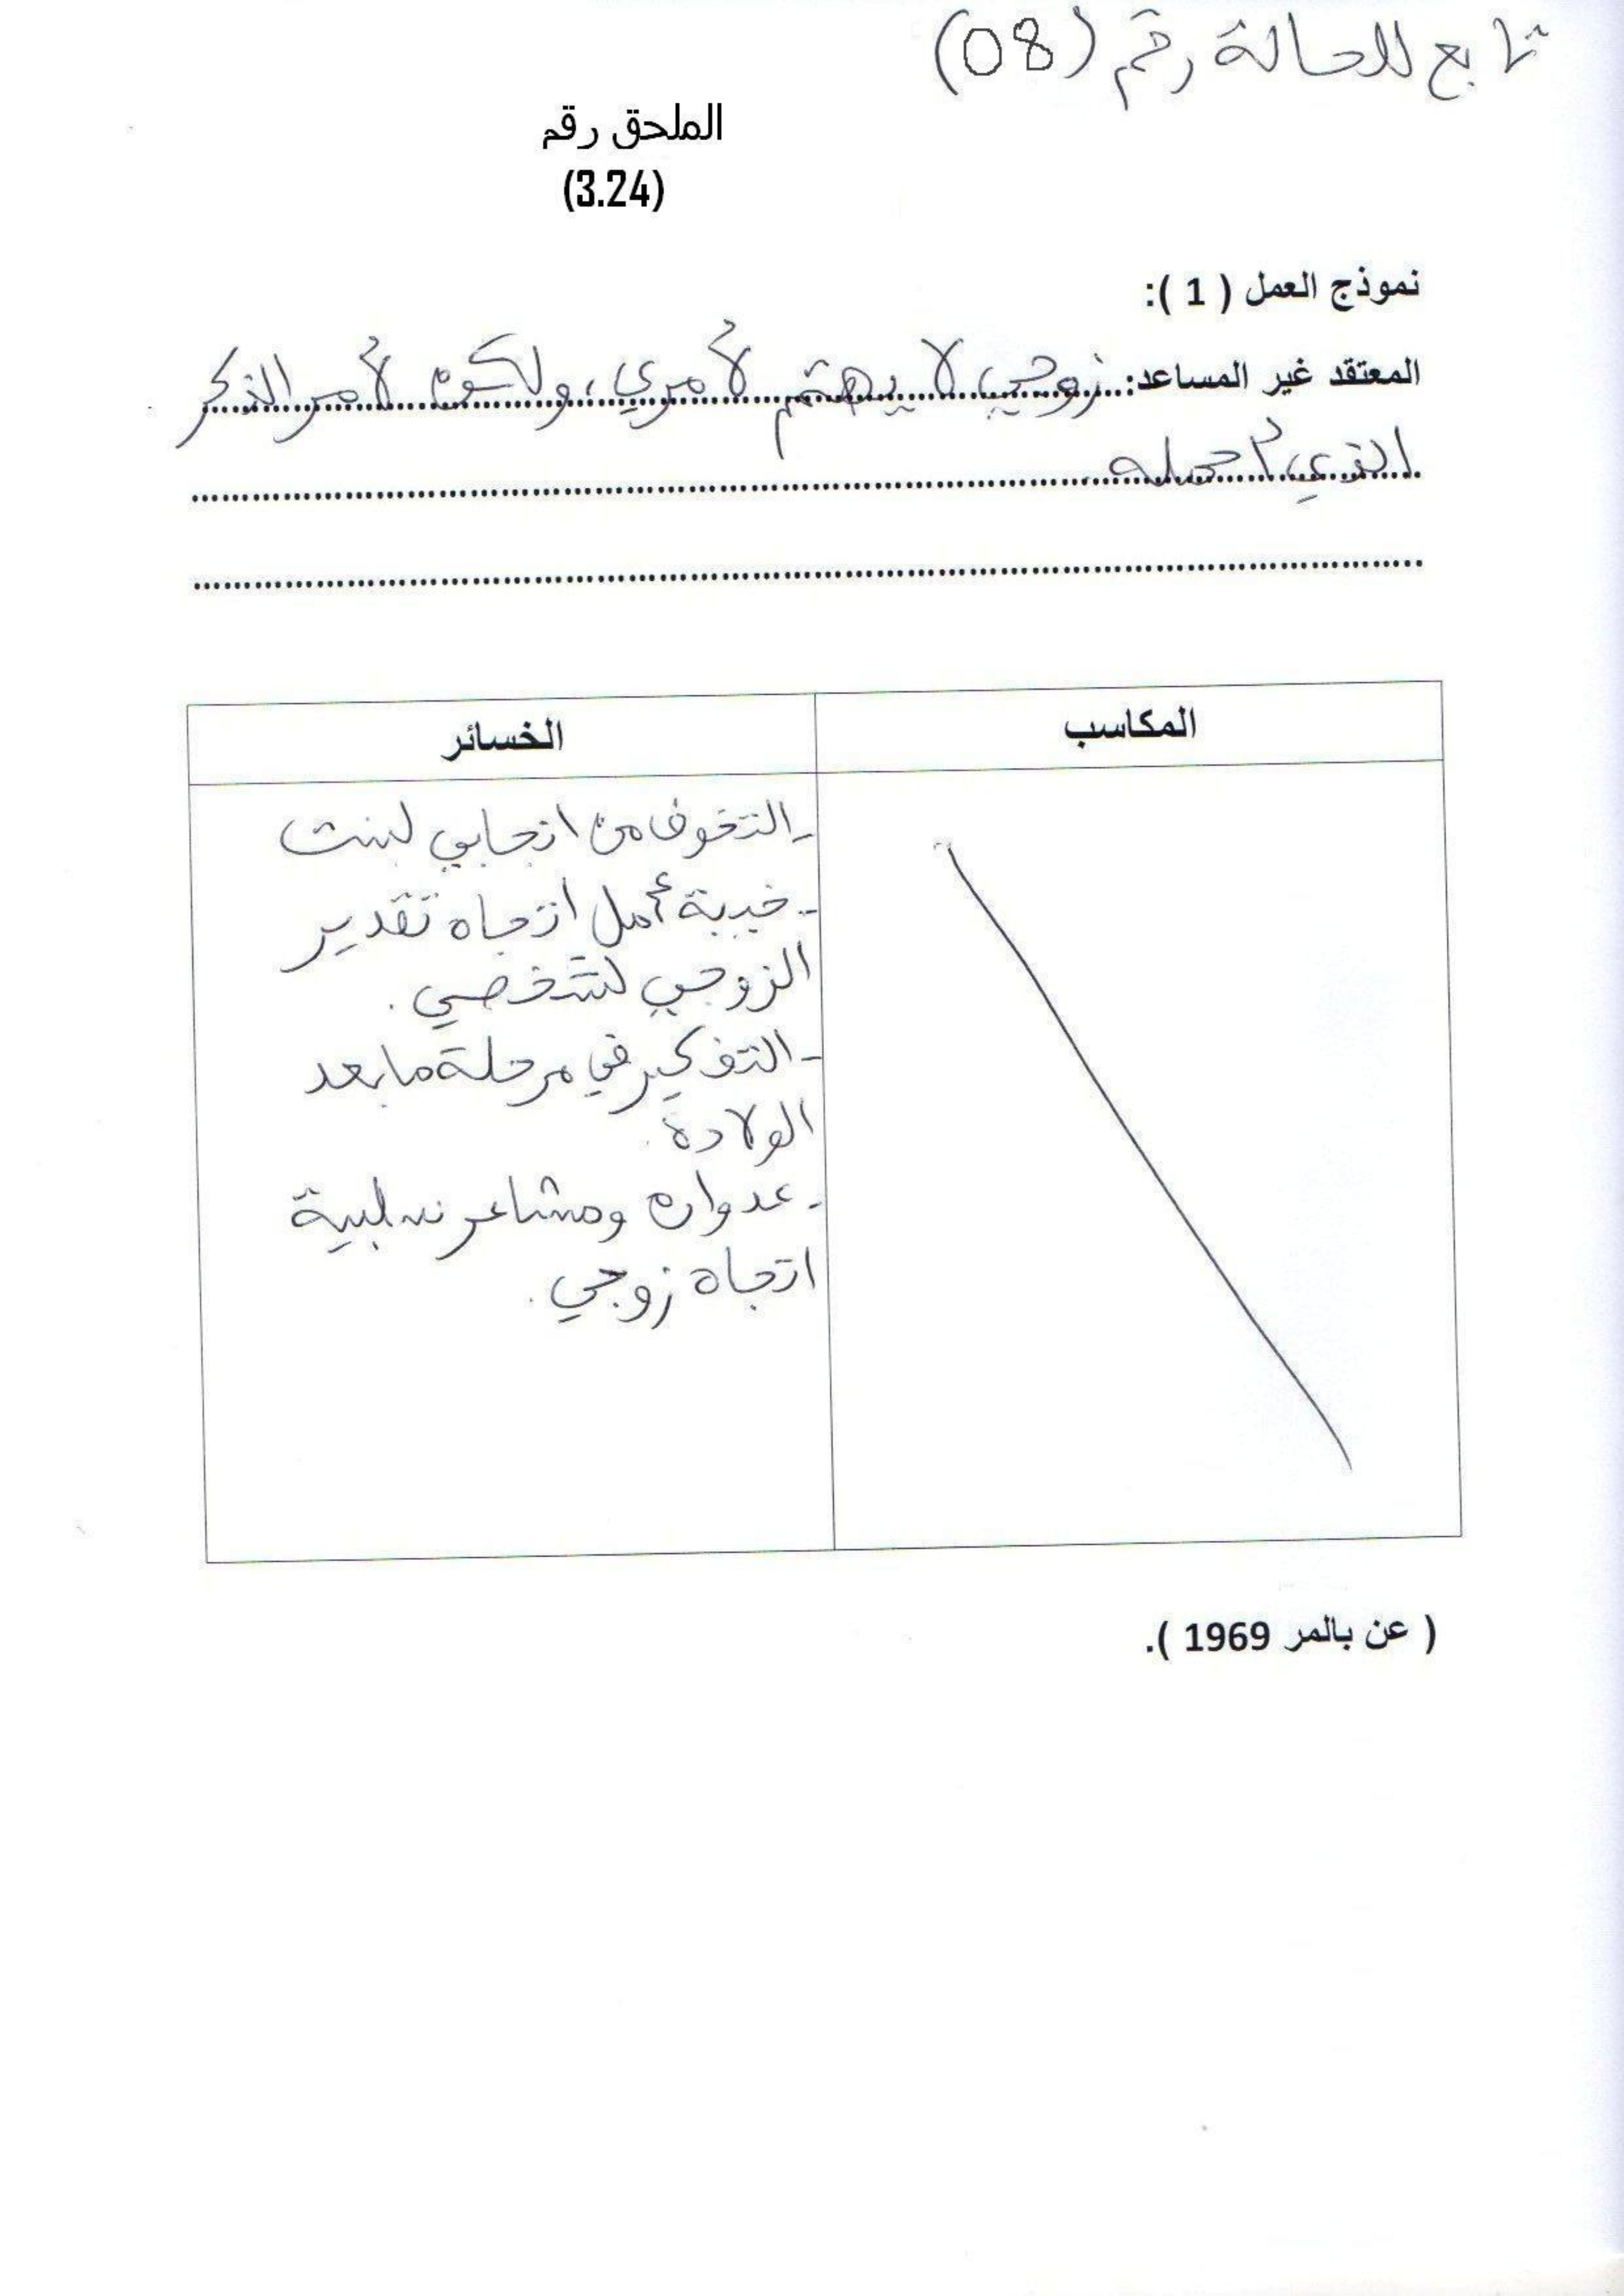 تابع للحالة رقم (08)
الملحق رقم
(3.24)
نموذج العمل ( 1 ):
المعتقد غير المساعد: زوجي لا يهتم لأمري، ولكن لأمر الذكر
الذي أحمله
المكاسب
الخسائر
- التخوف من انجابي لبنت
- خيبة أمل اتجاه تقدير
الزوجي لشخصي.
- التفكير في مرحلة ما بعد
الولادة.
- عدوان ومشاعر سلبية
اتجاه زوجي.
( عن بالمر 1969 ).